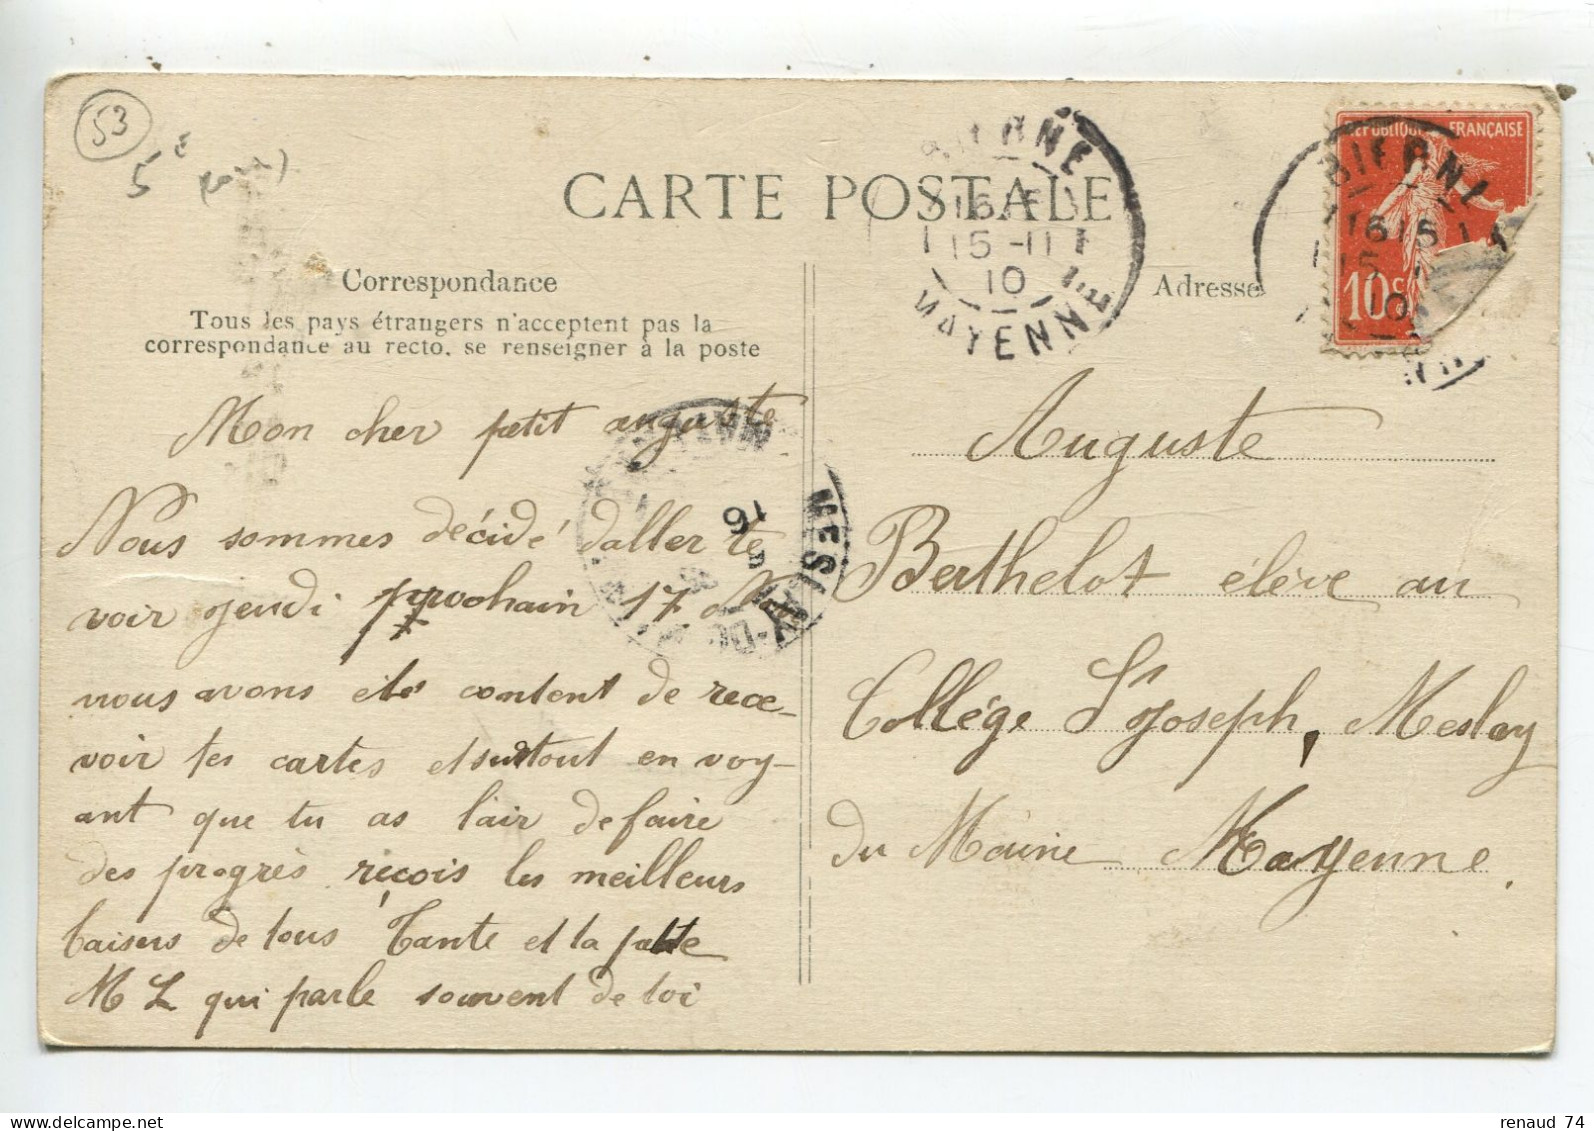 53
5 €
CARTE POSTALE
Correspondance
Tous les pays étrangers n'acceptent pas la
correspondance au recto, se renseigner à la poste
Mon cher petit auguste
Nous sommes décidé daller te
voir jeudi prochain 17 Nov
nous avons étés content de rece-
voir tes cartes et surtout en voy-
ant que tu as l'air de faire
des progrès reçois les meilleurs
baisers de tous Tante et la petite
M L qui parle souvent de toi
BIERNÉ
16 15
15-11
10
MAYENNE
Adresse
REPUBLIQUE FRANÇAISE
10c
BIERNÉ
16 15
15
10
16
MESLAY-DU-MAINE
Auguste
Berthelot élève au
Collége St Joseph, Meslay
du Maine Mayenne.
renaud 74